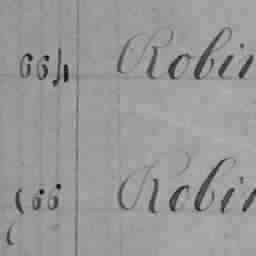 664 Robin
66 Robin